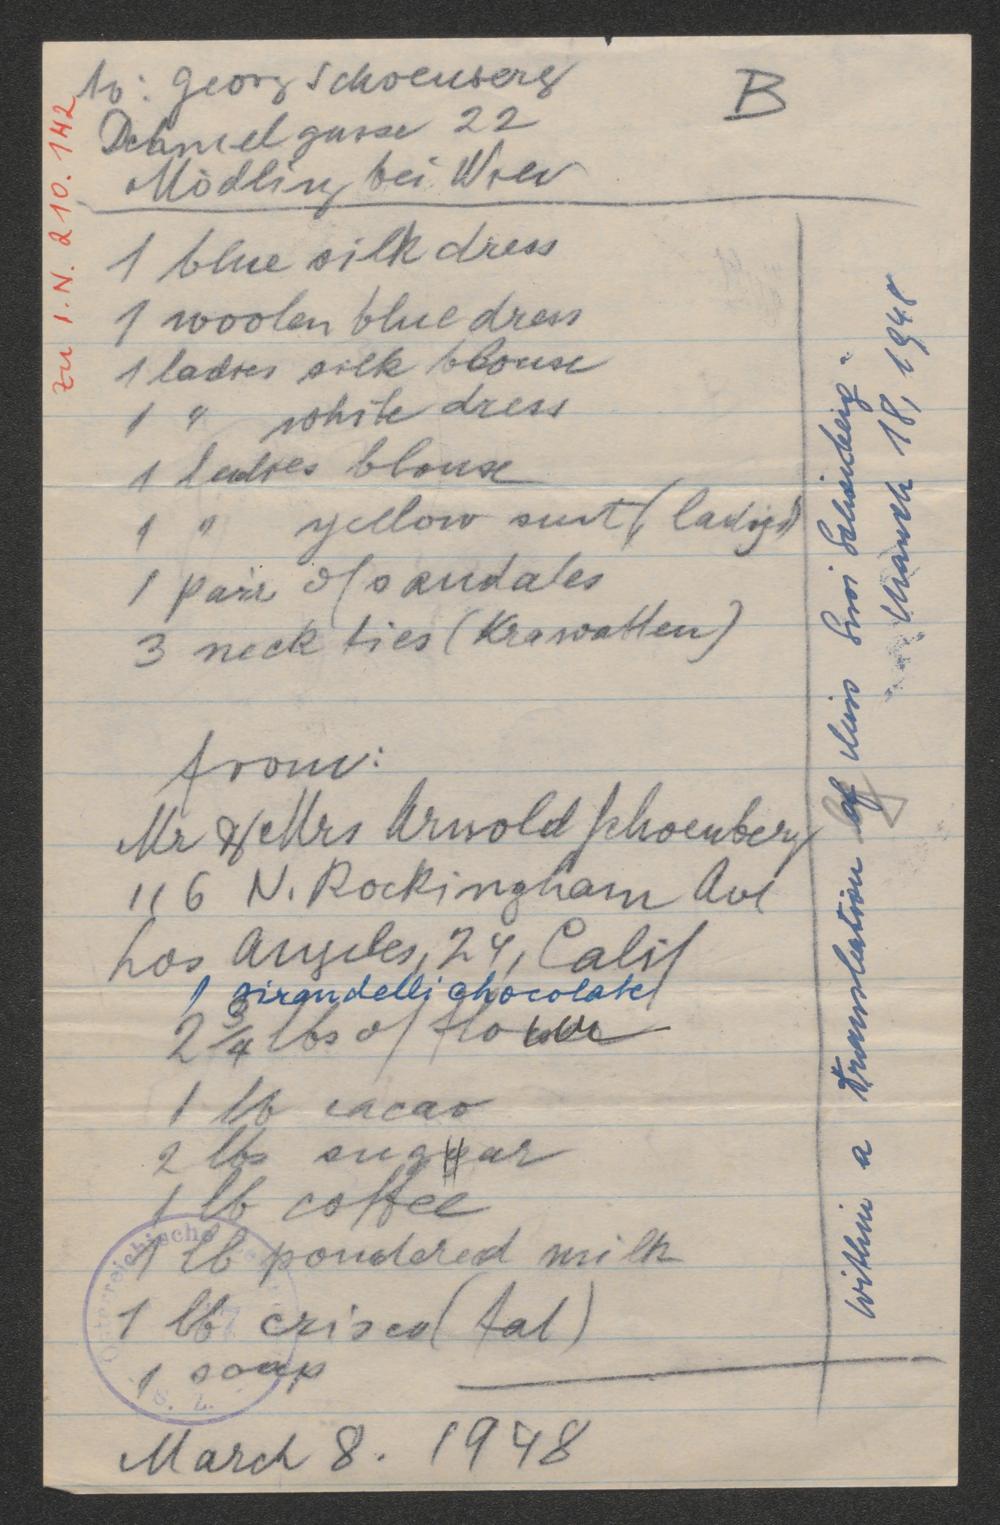 to: Georg Schoenberg
B
Dehmelgasse 22
Mödling bei Wien
1 blue silk dress
1 woolen blue dress
1 ladies silk blouse
1 " white dress
1 ladies blouse
1 " yellow suit (ladys)
1 pair of sandales
3 neck ties (Krawatten)
from:
Mr & Mrs Arnold Schoenberg
116 N. Rockingham Ave
Los Angeles, 24, Calif
1 girandelli chocolate
2 3/4 lbs of flour
1 lb cacao
2 lbs sugar
1 lb coffee
1 lb poudered milk
1 lb crisco (fat)
1 soap
March 8. 1948
zu I.N. 210.142
within a translation of Miss Susi
March 18, 1948
Österreichische
S. Z.